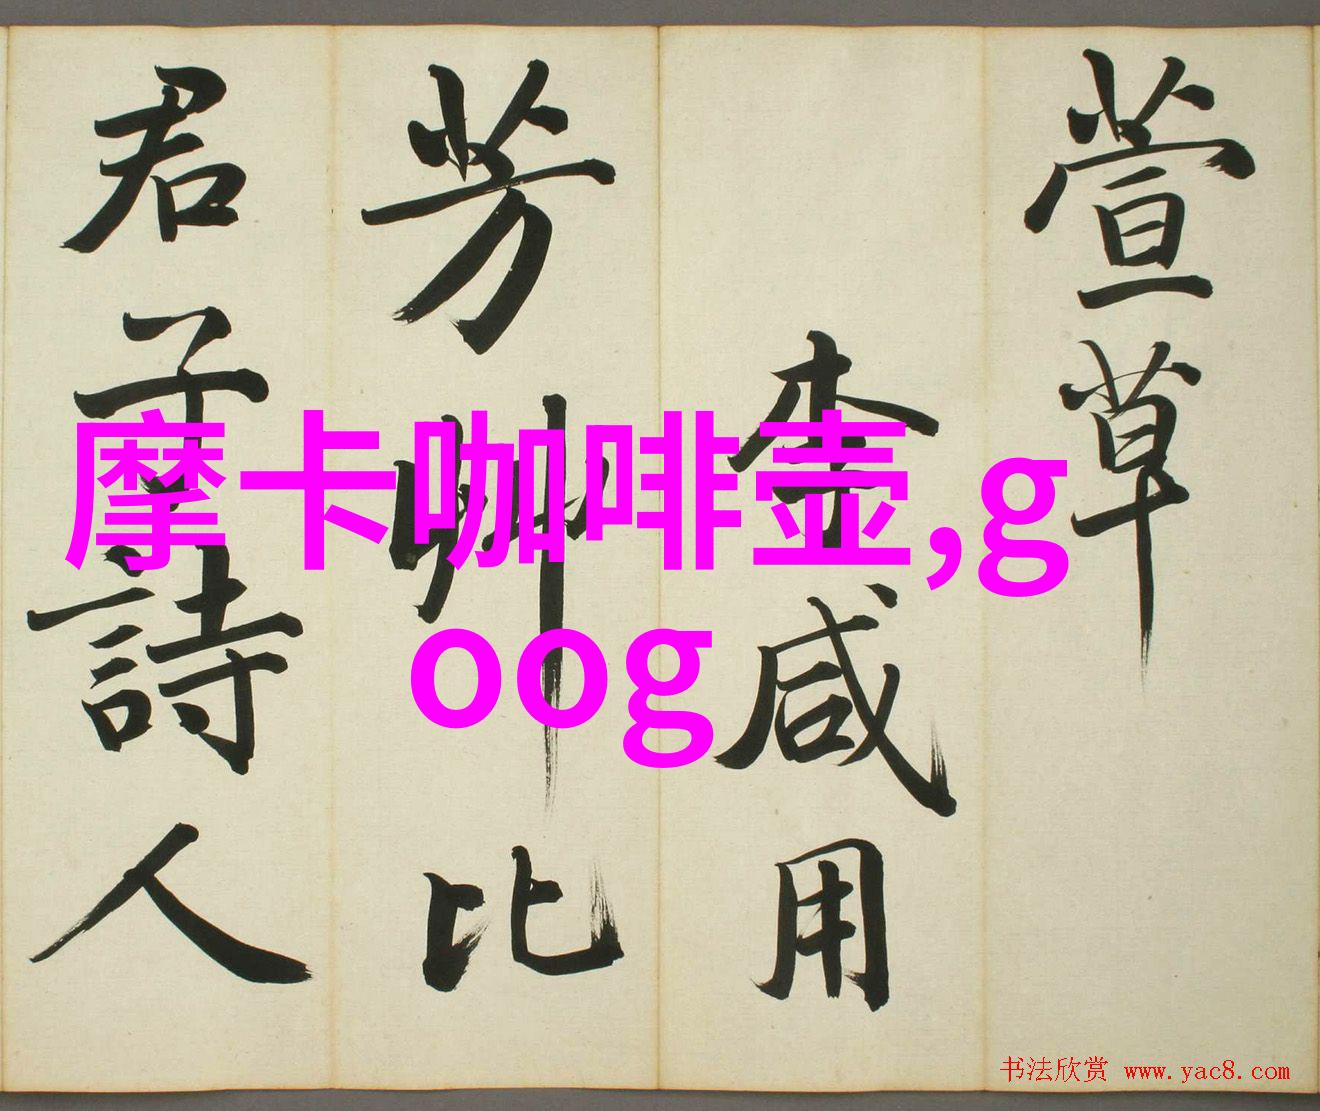 萱草
李咸用
芳艸比
君子詩人
摩卡咖啡壶,g
oog
书法欣赏 www.yac8.com